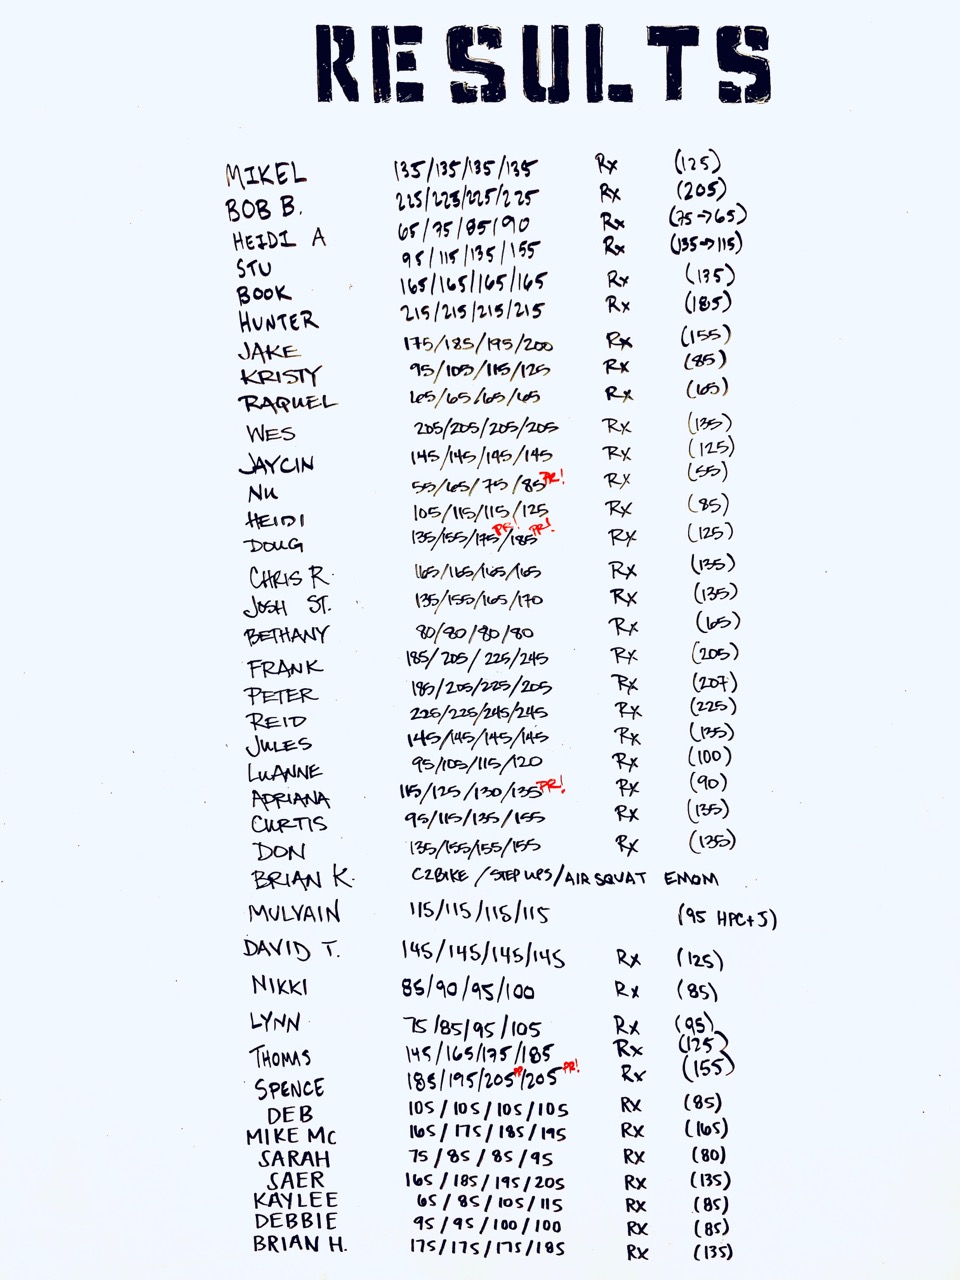 RESULTS
MIKEL 135/135/135/135 Rx (125)
BOB B. 225/225/225/225 Rx (205)
HEIDI A 65/75/85/90 Rx (75→65)
STU 95/115/135/155 Rx (135→115)
BOOK 165/165/165/165 Rx (135)
HUNTER 215/215/215/215 Rx (185)
JAKE 175/185/195/200 Rx (155)
KRISTY 95/105/115/125 Rx (85)
RAQUEL 65/65/65/65 Rx (65)
WES 205/205/205/205 Rx (135)
JAYCIN 145/145/145/145 Rx (125)
NU 55/65/75/85 PR! Rx (55)
HEIDI 105/115/115/125 Rx (85)
DOUG 135/155/175 PR!/185 PR! Rx (125)
CHRIS R. 165/165/165/165 Rx (135)
JOSH ST. 135/155/165/170 Rx (135)
BETHANY 80/80/80/80 Rx (65)
FRANK 185/205/225/245 Rx (205)
PETER 185/205/225/205 Rx (207)
REID 225/225/245/245 Rx (225)
JULES 145/145/145/145 Rx (135)
LUANNE 95/105/115/120 Rx (100)
ADRIANA 115/125/130/135 PR! Rx (90)
CURTIS 95/115/135/155 Rx (135)
DON 135/155/155/155 Rx (135)
BRIAN K. C2BIKE/STEP UPS/AIR SQUAT EMOM
MULVAIN 115/115/115/115 (95 HPC+J)
DAVID T. 145/145/145/145 Rx (125)
NIKKI 85/90/95/100 Rx (85)
LYNN 75/85/95/105 Rx (95)
THOMAS 145/165/175/185 Rx (125)
SPENCE 185/195/205/205 PR! Rx (155)
DEB 105/105/105/105 Rx (85)
MIKE MC 165/175/185/195 Rx (165)
SARAH 75/85/85/95 Rx (80)
SAER 165/185/195/205 Rx (135)
KAYLEE 65/85/105/115 Rx (85)
DEBBIE 95/95/100/100 Rx (85)
BRIAN H. 175/175/175/185 Rx (135)